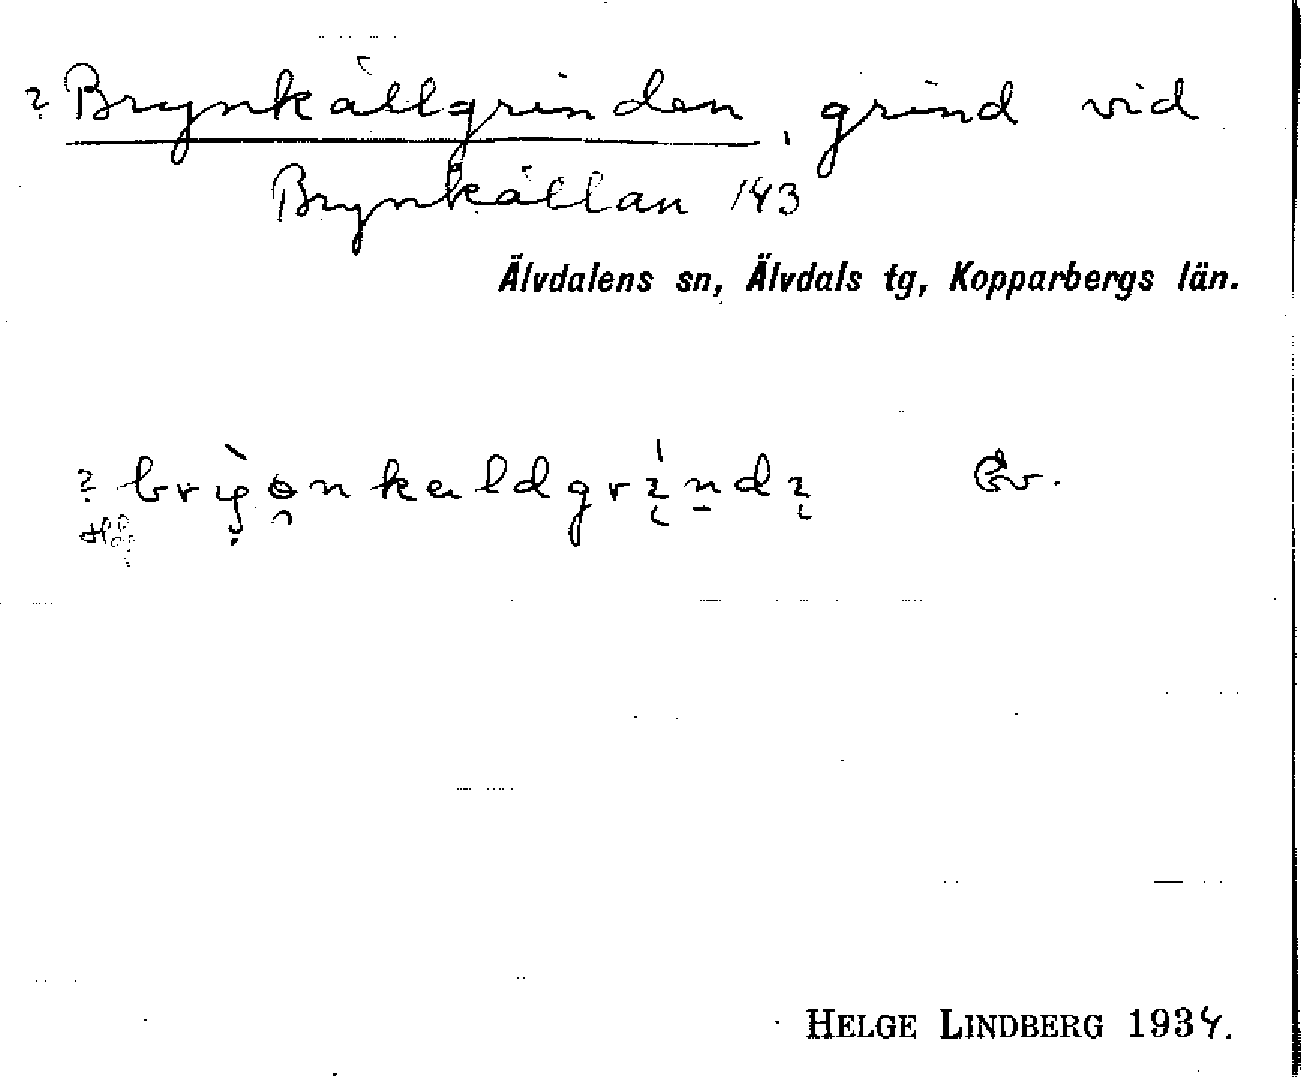 ? Brynkällgrinden, grind vid
Brynkällan 143
Älvdalens sn, Älvdals tg, Kopparbergs län.
Ev.
HELGE LINDBERG 1934.